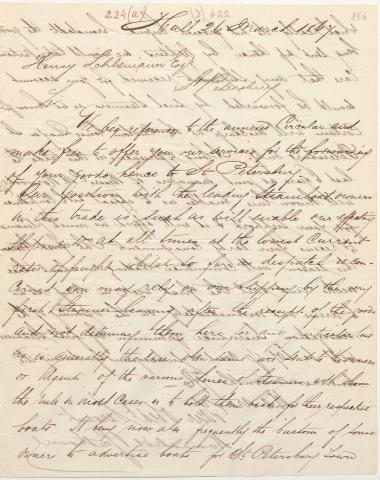 224(a)
156
Hull, 26 March 1867
Henry Schliemann Esq
Petersburg
Sir
We beg reference to the annexed Circular and
make free to offer you our services for the forwarding
of your goods hence to St Petersburg
Our position with the leading Steamboat owners
in this trade is such as will enable our
at all times at the lowest current
rates of freight whilst so far as despatch is con-
cerned you may rely on our shipping by the very
first Steamer after the receipt of the goods
and not detaining them here in our
as is generally the case when sent to the owners
or Agents of the various lines of Steamers with whom
the rule in most cases is to hold them back for their respective
boats It being now also frequently the custom of some
owners to advertise boats for St Petersburg